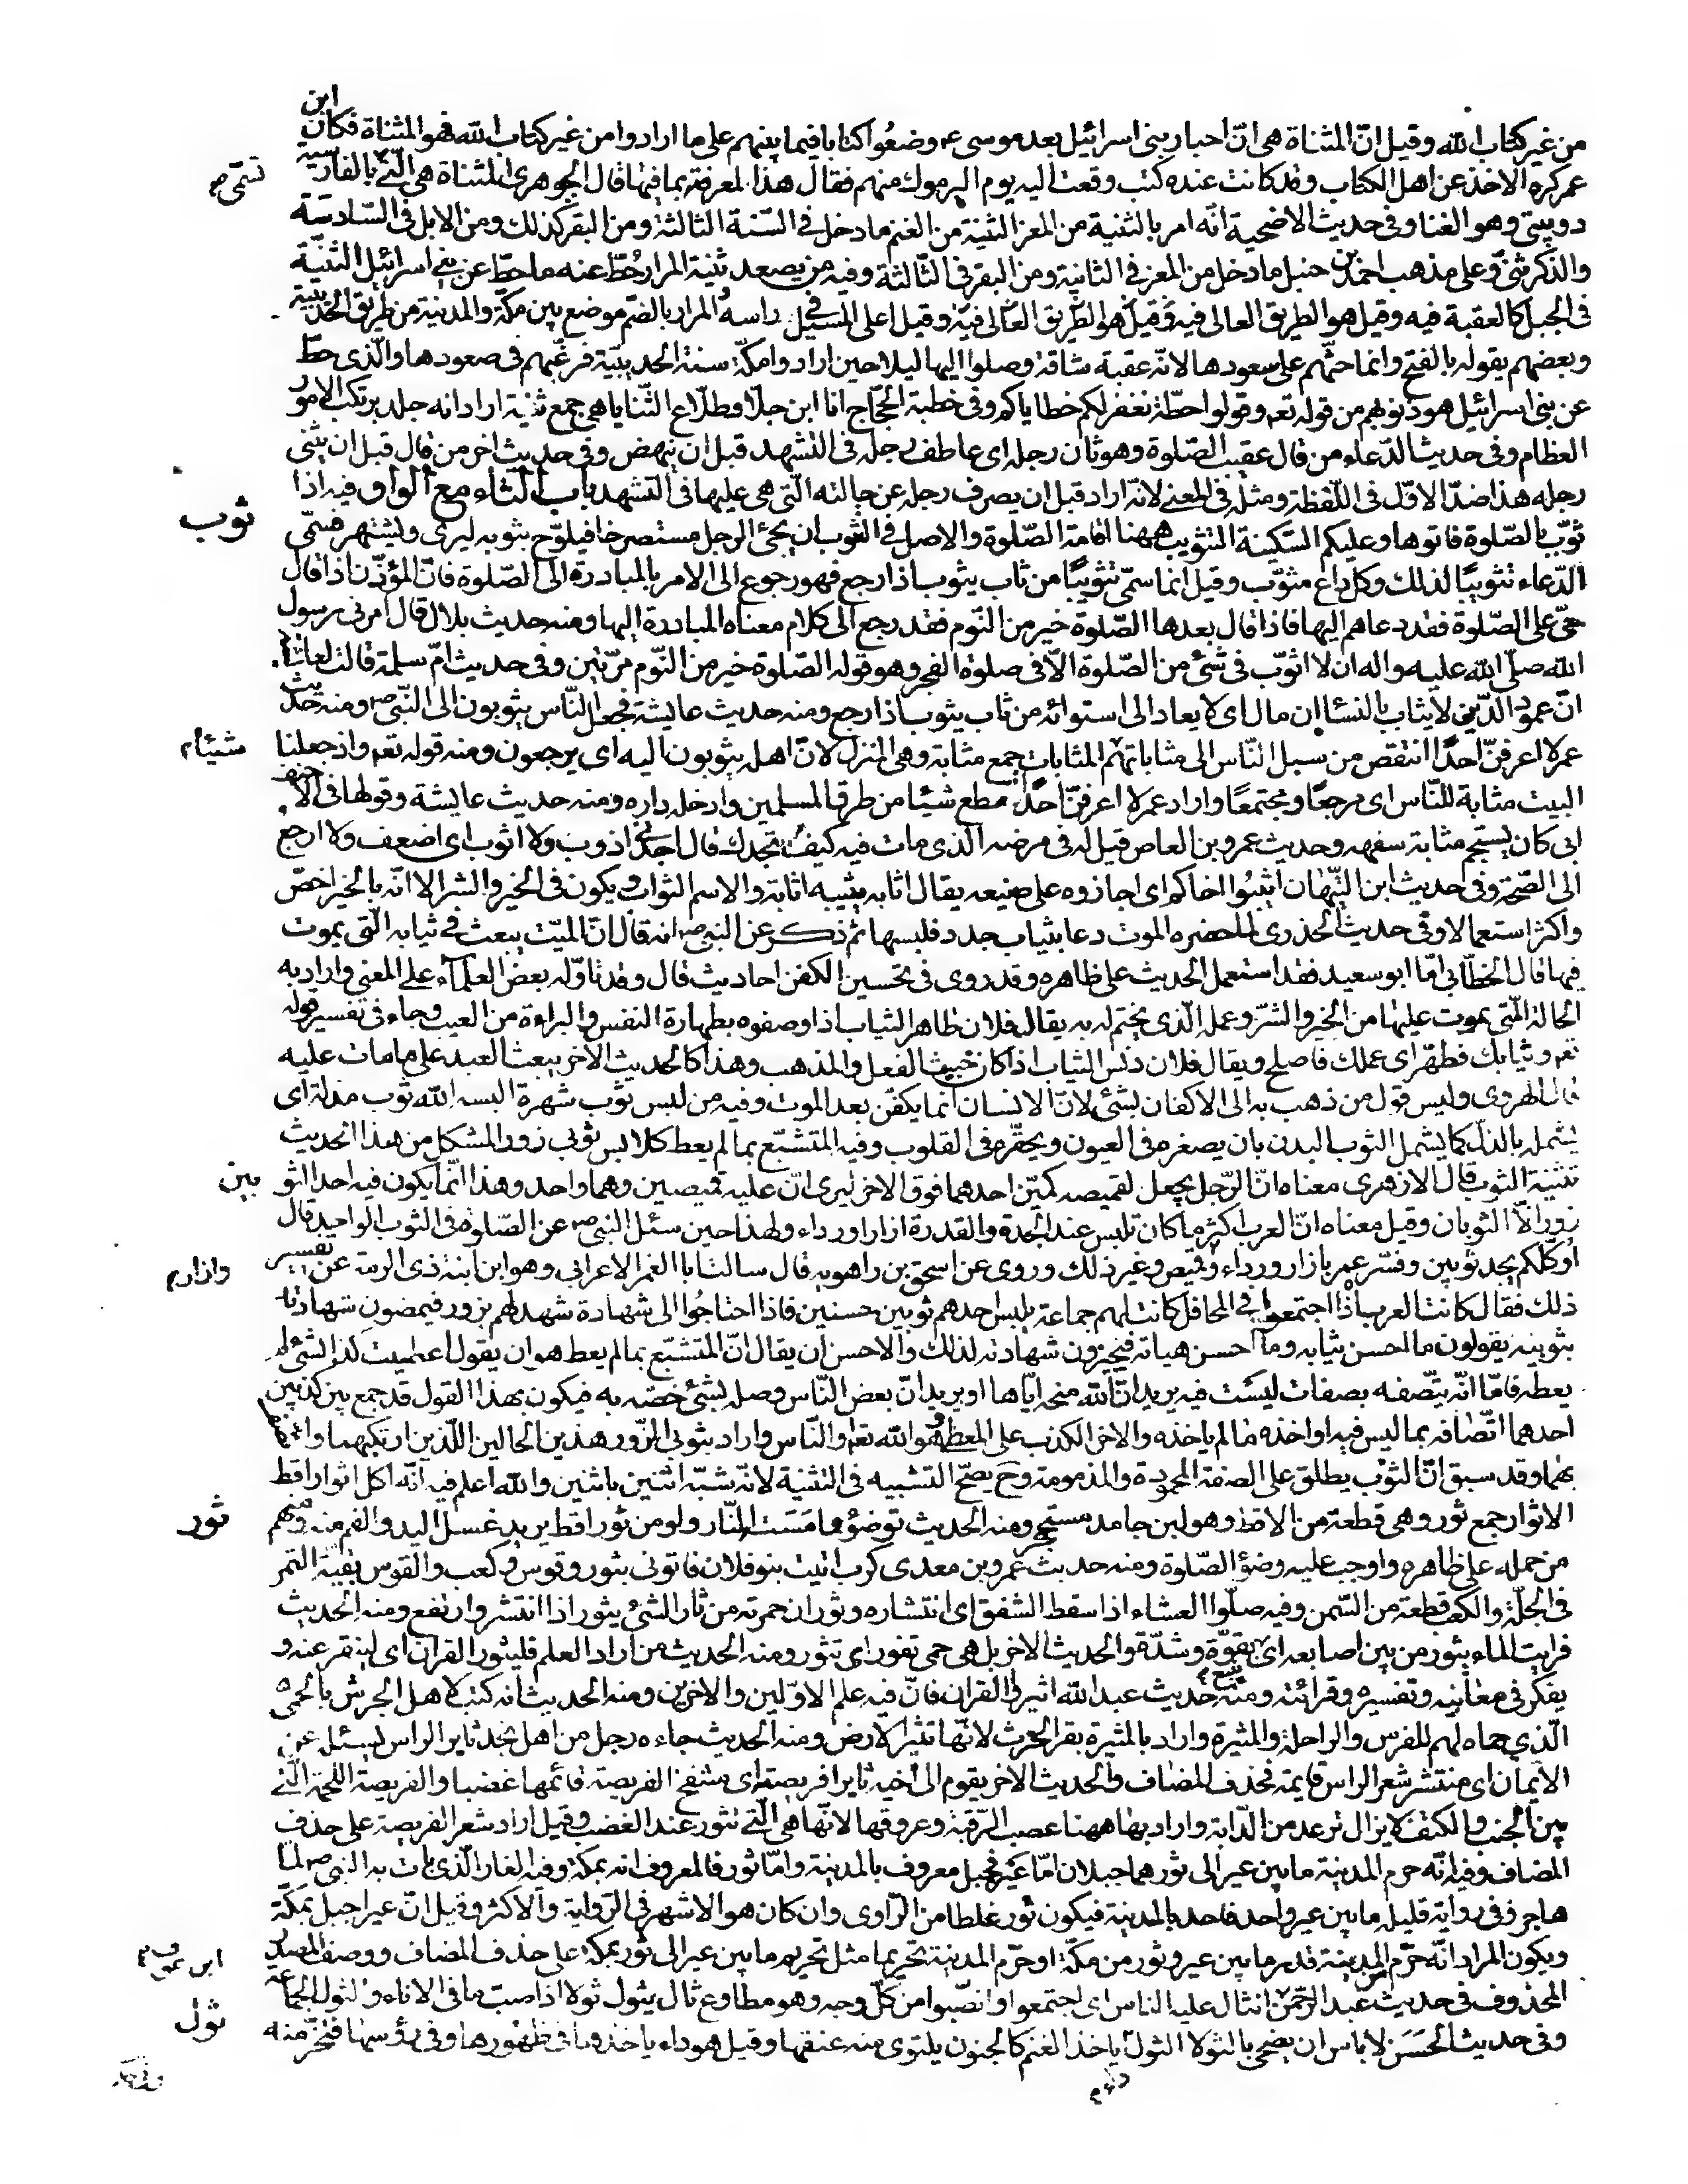 من غير كتاب الله وقيل انّ المثناة هى انّ احبار بنى اسرائيل بعد موسى ع وضعُوا كتابا فيما بينهم على ما ارادوا من غير كتاب الله فهو المثناة فكانّ ابن
عمر كره الاخذ عن اهل الكتاب وقد كانت عنده كتب وقعت اليه يوم اليرموك منهم فقال هذا لمعرفته بما فيها قال الجوهرى المثناة هى الّتى بالفارسية
تسمّى ص
دوبيتى وهو الغنا وفى حديث الاضحية انّه امر بالثنية من المعز الثنية من الغنم ما دخل فى السّنة الثالثة ومن البقر كذلك ومن الابل فى السّادسة
والذكر ثنىّ وعلى مذهب احمد بن حنبل ما دخل من المعز فى الثانية ومن البقر فى الثّالثة وفيه من يصعد ثنية المرار حُطّ عنه ما حطّ عن بنى اسرائيل الثنيّة
فى الجبل كالعقبة فيه وقيل هو الطريق العالى فيه وقيل اعلى المسيل فى راسه المرار بالضمّ موضع بين مكّة والمدينة من طريق الحديبية
وبعضهم يقوله بالفتح وانما حثّهم على صعودها لانّه عقبة شاقة وصلوا اليها ليلا حين ارادوا مكّة سنة الحديبيّة فرغّبهم فى صعودها والّذى حطّ
عن بنى اسرائيل هو ذنوبهم من قوله تعم وقولوا حطّة نغفر لكم خطاياكم وفى خطبة الحجّاج انا ابن جلا وطلّاع الثّنايا هى جمع ثنية اراد انه جلد يرتكب الامور
العظام وفى حديث الدّعاء من قال عقيب الصّلوة وهو ثان رجله اى عاطف رجله فى التشهد قبل ان ينهض وفى حديث اخر من قال قبل ان يثنى
رجله هذا ضدّ الاوّل فى اللّفظة ومثله فى المعنى لانّه اراد قبل ان يصرف رجله عن حالته الّتى هى عليها فى التشهد باب الثاء مع الواو فيه اذا
ثوب
ثوّب بالصّلوة فاتوها وعليكم السّكينة التثويب ههنا اقامة الصّلوة والاصل فى التثوب ان يجئ الرجل مستصرخا فيلوّح بثوبه ليرى وليشتهر فسمّى
الدّعاء تثويبًا لذلك وكل داع مثوّب وقيل انما سمّى تثويبًا من ثاب يثوب اذا رجع فهو رجوع الى الامر بالمبادرة الى الصّلوة فانّ المؤذّن اذا قال
حىّ على الصّلوة فقد دعاهم اليها فاذا قال بعدها الصّلوة خير من النّوم فقد رجع الى كلام معناه المبادرة اليها ومنه حديث بلال قال امرنى رسول
الله صلّى الله عليه واله ان لا اثوّب فى شئ من الصّلوة الّا فى صلوة الفجر وهو قوله الصّلوة خير من النّوم مرّتين وفى حديث امّ سلمة قالت لعائشة
انّ عمود الدّين لا يثاب بالنسا ان مال اى لا يعاد الى استوائه من ثاب يثوب اذا رجع ومنه حديث عايشة فجعل النّاس يثوبون الى النّبى ص ومنه حديث
عمر لا اعرفنّ احدًا انتقص من سبل النّاس الى مثاباتهم المثابات جمع مثابة وهى المنزل لانّ اهله يثوبون اليه اى يرجعون ومنه قوله تعم واذ جعلنا
شيئام
البيت مثابة للنّاس اى مرجعًا ومجتمعًا واراد عمر لا اعرفنّ احدًا قطع شيئا من طرق المسلمين وادخله داره ومنه حديث عايشة وقولها فى الاحنف
ابى كان يستجم مثابة سفهه وحديث عمرو بن العاص قيل له فى مرضه الذى مات فيه كيف تجدك قال اجدنى اذوب ولا اثوب اى اضعف ولا ارجع
الى الصّحة وفى حديث ابن التّيّهان اثيبُوا اخاكم اى اجازوه على صنيعه يقال اثابه يثيبه اثابة والاسم الثواب ويكون فى الخير والشر الا انّه بالخير اخصّ
واكثر استعمالا وفى حديث الخذرى لما حضره الموت دعا بثياب جدد فلبسها ثم ذكر عن النبى ص انه قال انّ الميّت يبعث فى ثيابه الّتى يموت
فيها قال الخطّابى امّا ابو سعيد فقد استعمل الحديث على ظاهره وقد روى فى تحسين الكفن احاديث قال وقد تاوّله بعض العلماء على المعنى واراد به
الحالة الّتى يموت عليها من الخير والشرّ وعمله الّذى يختم له به يقال فلان طاهر الثياب اذا وصفوه بطهارة النفس والبراءة من العيب وجاء فى تفسير قوله
تعم وثيابك فطهّر اى عملك فاصلح ويقال فلان دنس الثياب اذا كان خبيث الفعل والمذهب وهذا كالحديث الاخر يبعث العبد على ما مات عليه
قال الهروى وليس قول من ذهب به الى الاكفان بشئ لانّ الانسان انّما يكفّن بعد الموت وفيه من لبس ثوب شهرة البسه الله ثوب مذلة اى
يشمله بالذلّ كما يشمل الثوب البدن بان يصغره فى العيون ويحقّره فى القلوب وفيه المتشبّع بما لم يعط كلابس ثوبى زور المشكل من هذا الحديث
تثنية الثوب قال الازهرى معناه انّ الرّجل يجعل لقميصه كمّين احدهما فوق الاخر ليرى انّ عليه قميصين وهما واحد وهذا انّما يكون فيه احد الثو
بين
زورا لا الثوبان وقيل معناه انّ العرب اكثر ما كان تلبس عند الجدة والقدرة ازارا ورداء ولهذا حين سئل النبى ص عن الصّلوة فى الثوب الواحد قال
اوكلّكم يجد ثوبين وفسّر عمر بازار ورداء وقميص وغير ذلك وروى عن اسحق بن راهويه قال سالت ابا الغمر الاعرابى وهو ابن ابنة ذى الرمة عن تفسير
وازارم
ذلك فقال كانت العرب اذا اجتمعوا فى المحافل كانت لهم جماعة يلبس احدهم ثوبين حسنين فاذا احتاجُوا الى شهادة شهد لهم بزور فيمضون شهادته
بثوبيه يقولون ما احسن ثيابه وما احسن هياته فيجيزون شهادته لذلك والاحسن ان يقال انّ المتشبّع بما لم يعط هو ان يقول اعطيت كذا لشئ لم
يعطه فامّا انّه يتّصفه بصفات ليست فيه يريد انّ الله منحه ايّاها او يريد انّ بعض النّاس وصله بشئ خصّه به فيكون بهذا القول قد جمع بين كذبين
احدهما اتّصافه بما ليس فيه او اخذه ما لم ياخذه والاخر الكذب على المعطى وهو الله تعم او النّاس واراد بثوبى الزّور هذين الحالين اللّذين ارتكبهما واتصف
بهما وقد سبق انّ الثوب يطلق على الصفة المحمودة والمذمومة وح يصحّ التشبيه فى التثنية لانّه شبّه اثنين باثنين والله اعلم فيه انّه اكل اثوار اقط
الاثوار جمع ثور وهى قطعة من الاقط وهو لبن جامد مستحجر ومنه الحديث توضؤا مما مسّت النّار ولو من ثور اقط يريد غسل اليد والفم منه ومنهم
ثور
من حمله على ظاهره واوجب عليه وضؤ الصّلوة ومنه حديث عمرو بن معدى كرب اتيت بنو فلان فاتونى بثور وقوس وكعب والقوس بقيّة التمر
فى الجلّة والكعب قطعة من السّمن وفيه صلّوا العشاء اذا سقط الشفق اى انتشاره وثوران حمرته من ثار الشئ يثور اذا انتشر وارتفع ومنه الحديث
فرايت الماء يثور من بين اصابعه اى بقوّة وشدّة والحديث الاخر بل هى حمى تفور اى تثور ومنه الحديث من اراد العلم فليثور القران اى لينقر عنه و
يفكر فى معانيه وتفسيره وقرائته ومنه حديث عبد الله اثيروا القران فانّ فيه علم الاوّلين والاخرين ومنه الحديث انه كتب لاهل الجرش بالحمى
الّذى حماه لهم للفرس والراحلة والمثيرة واراد بالمثيرة بقر الحرث لانّها تثير الارض ومنه الحديث جاءه رجل من اهل نجد ثاير الراس يسئل عن
الايمان اى منتشر شعر الراس قايمه فحذف المضاف والحديث الاخر يقوم الى اخيه ثايرا فريصته اى منتفخ الفريصة قائمها غضبا والفريصة اللحمة الّتى
بين الجنب والكتف لا يزال ترعد من الدّابة واراد بها ههنا عصب الرّقبة وعروقها لانّها هى الّتى تثور عند الغضب وقيل اراد شعر الفريصة على حذف
المضاف وفيه انّه حرم المدينة ما بين عير الى ثور هما جبلان امّا عير فجبل معروف بالمدينة وامّا ثور فالمعروف انه بمكة وفيه الغار الّذى بات به النبى ص لمّا
هاجر وفى رواية قليلة ما بين عير واحد فاحد بالمدينة فيكون ثور غلطا من الرّاوى وان كان هو الاشهر فى الرّواية والاكثر وقيل انّ عيرا جبل بمكّة
ويكون المراد انّه حرّم المدينة قدر ما بين عير وثور من مكّة او حرّم المدينة تحريما مثل تحريم ما بين عير الى ثور بمكة على حذف المضاف ووصف المصدر
المحذوف فى حديث عبد الرّحمن انثال عليه الناس اى اجتمعوا وانصّبوا من كلّ وجه وهو مطاوع ثال يثول ثولا اذا صبّ ما فى الاناء والثول الجماعة
ثول
وفى حديث الحَسَن لا باس ان يضحى بالثولا الثول ياخذ الغنم كالجنون يلتوى منه عنقها وقيل هو داء ياخذها فى ظهورها وفى رؤسها فتخرّ منه